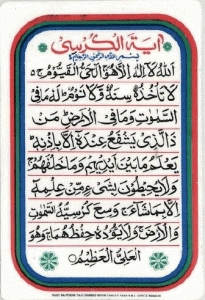 اٰیة الکرسی
بسم الله الرحمن الرحیم
اَللّٰهُ لَاۤ اِلٰهَ اِلَّا هُوَ الْحَیُّ الْقَیُّوْمُ ۚ
لَا تَاْخُذُهٗ سِنَةٌ وَّلَا نَوْمٌ ؕ لَهٗ مَا فِی
السَّمٰوٰتِ وَمَا فِی الْاَرْضِ ؕ مَنْ
ذَا الَّذِیْ یَشْفَعُ عِنْدَهٗۤ اِلَّا بِاِذْنِهٖ ؕ
یَعْلَمُ مَا بَیْنَ اَیْدِیْهِمْ وَمَا خَلْفَهُمْ ۚ
وَلَا یُحِیْطُوْنَ بِشَیْءٍ مِّنْ عِلْمِهٖۤ
اِلَّا بِمَا شَآءَ ۚ وَسِعَ کُرْسِیُّهُ السَّمٰوٰتِ
وَالْاَرْضَ ۚ وَلَا یَـُٔوْدُهٗ حِفْظُهُمَا ۚ وَهُوَ
الْعَلِیُّ الْعَظِیْمُ